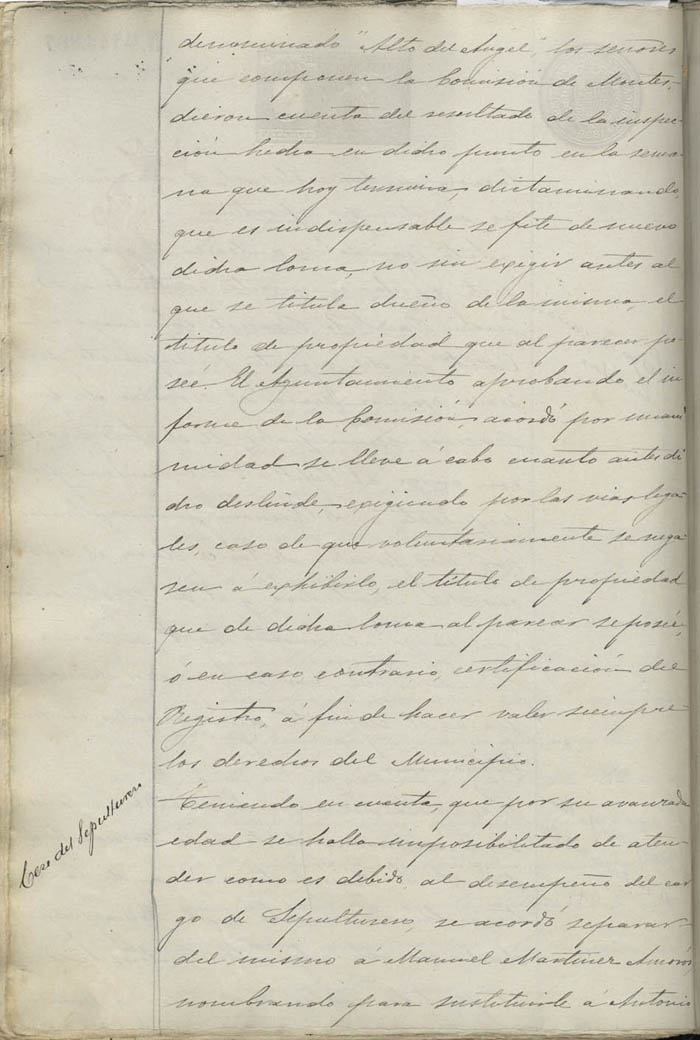 denominado "Alto del Angel", los señores
que componen la Comisión de Montes,
dieron cuenta del resultado de la inspec-
ción hecha en dicho punto en la sema-
na que hoy termina, dictaminando,
que es indispensable se fite de nuevo
dicha loma, no sin exigir antes al
que se titula dueño de la misma, el
titulo de propiedad que al parecer po-
seé. El Ayuntamiento aprobando el in
forme de la Comisión, acordó por unani
midad se lleve á cabo cuanto antes di
cho deslinde, exigiendo por las vias lega-
les, caso de que voluntariamente se nega
sen á exhibirlo, el título de propiedad
que de dicha loma al parecer se poseé,
ó en caso contrario, certificación del
Registro, á fin de hacer valer siempre
los derechos del Municipio.
Cese del Sepulturero
Teniendo en cuenta, que por su avanzada
edad se halla imposibilitado de aten-
der como es debido, al desempeño del car-
go de Sepulturero, se acordó separar
del mismo á Manuel Martinez Amorós
nombrando para sustituirle á Antonio